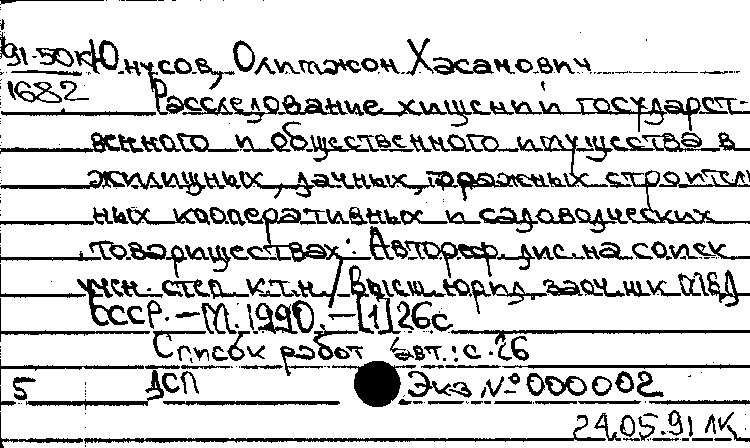 91-50к Юнусов, Олимжон Хасанович
1682 Расследование хищений государст-
венного и общественного имущества в
жилищных, дачных, гаражных строитель
ных кооперативных и садоводческих
товариществах: Автореф. дис. на соиск
учен. степ. к.т.н. / Высш. юрид. заоч. шк МВД
СССР. — М. 1990. — [1] 26с.
Список работ авт.: с. 26
5 ДСП Экз № 000002
24.05.91 ЛК